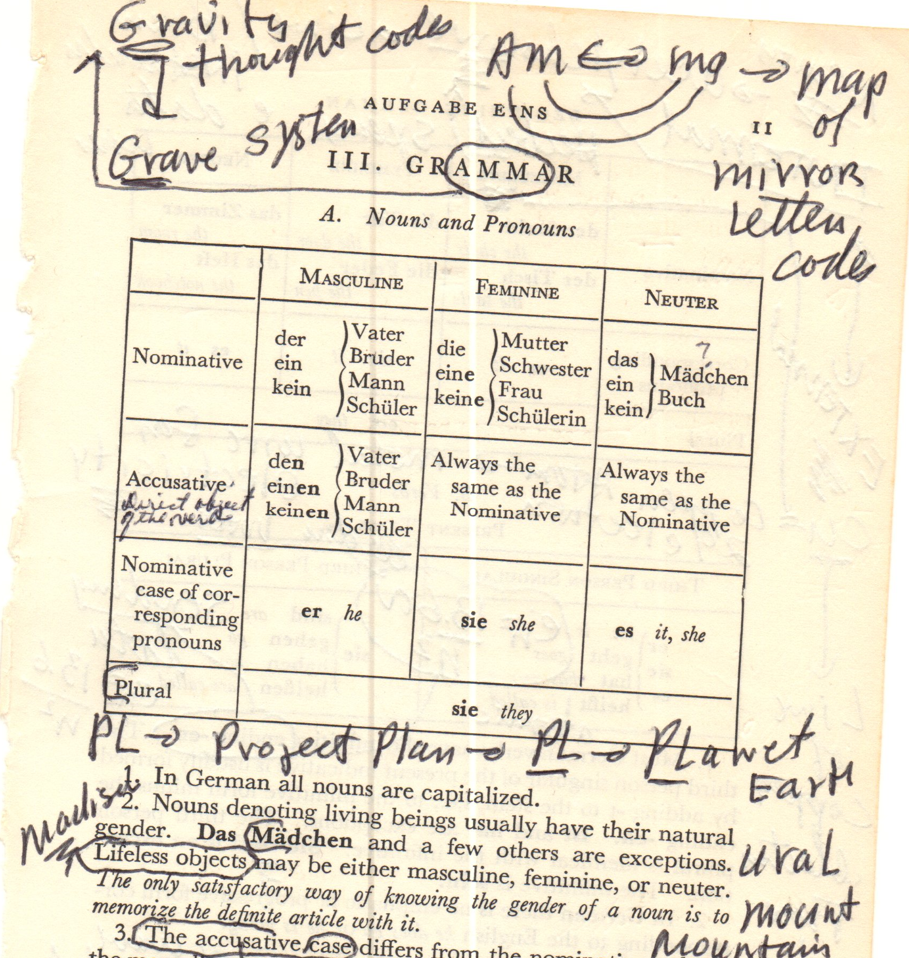 Gravity
thought codes
AM ↔ mg → map
of
mirror
Letter
codes
AUFGABE EINS
II
Grave System
III. GRAMMAR
A. Nouns and Pronouns
MASCULINE FEMININE NEUTER
Nominative
der
ein
kein
Vater
Bruder
Mann
Schüler
die
eine
keine
Mutter
Schwester
Frau
Schülerin
?
das
ein
kein
Mädchen
Buch
Accusative
Direct object
of the verb
den
einen
keinen
Vater
Bruder
Mann
Schüler
Always the
same as the
Nominative
Always the
same as the
Nominative
Nominative
case of cor-
responding
pronouns
er he
sie she
es it, she
Plural
sie they
PL → Project Plan → PL → PLanet
Earth
1. In German all nouns are capitalized.
2. Nouns denoting living beings usually have their natural
gender. Das Mädchen and a few others are exceptions.
Lifeless objects may be either masculine, feminine, or neuter.
The only satisfactory way of knowing the gender of a noun is to
memorize the definite article with it.
3. The accusative case differs from the
ural
mount
mountain